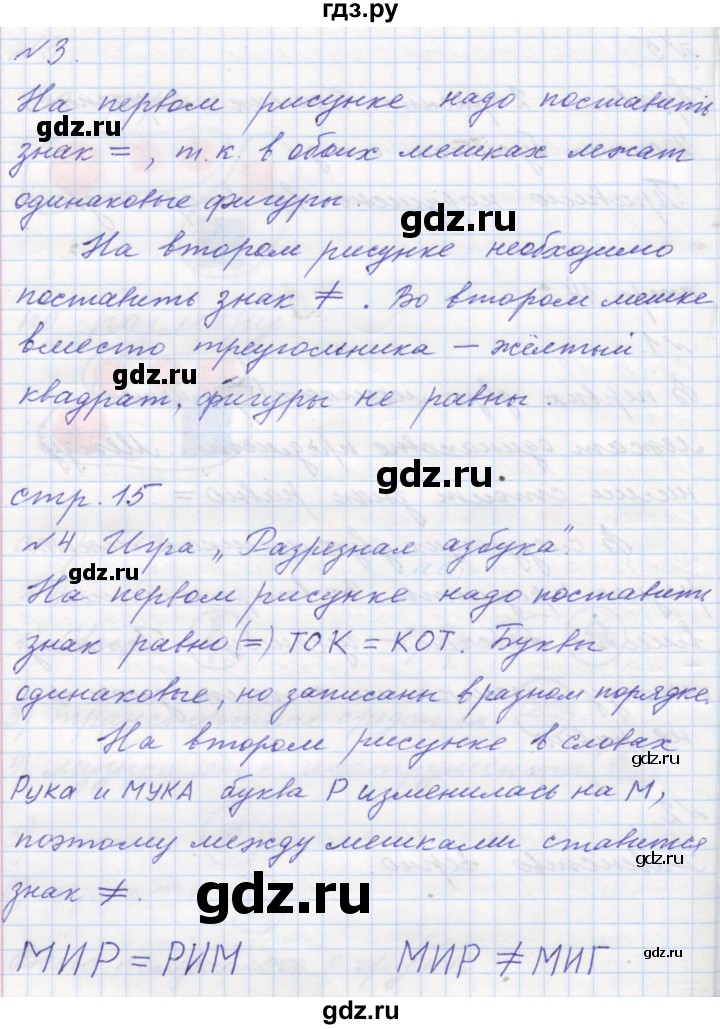 гдз.ру
№3.
На первом рисунке надо поставить
gdz.ru
знак =, т.к. в обоих мешках лежат
одинаковые фигуры.
gdz.ru
На втором рисунке необходимо
поставить знак ≠. Во втором мешке
вместо треугольника – жёлтый
gdz.ru
квадрат, фигуры не равны.
gdz.ru
стр. 15
№4 Игра „Разрезная азбука".
gdz.ru
На первом рисунке надо поставить
знак равно (=) ТОК = КОТ. Буквы
одинаковые, но записаны в разном порядке.
На втором рисунке в словах
gdz.ru
Рука и МУКА буква Р изменилась на М,
поэтому между мешками ставится
gdz.ru
знак ≠.
gdz.ru
МИР = РИМ МИР ≠ МИГ
gdz.ru
gdz.ru
gdz.ru